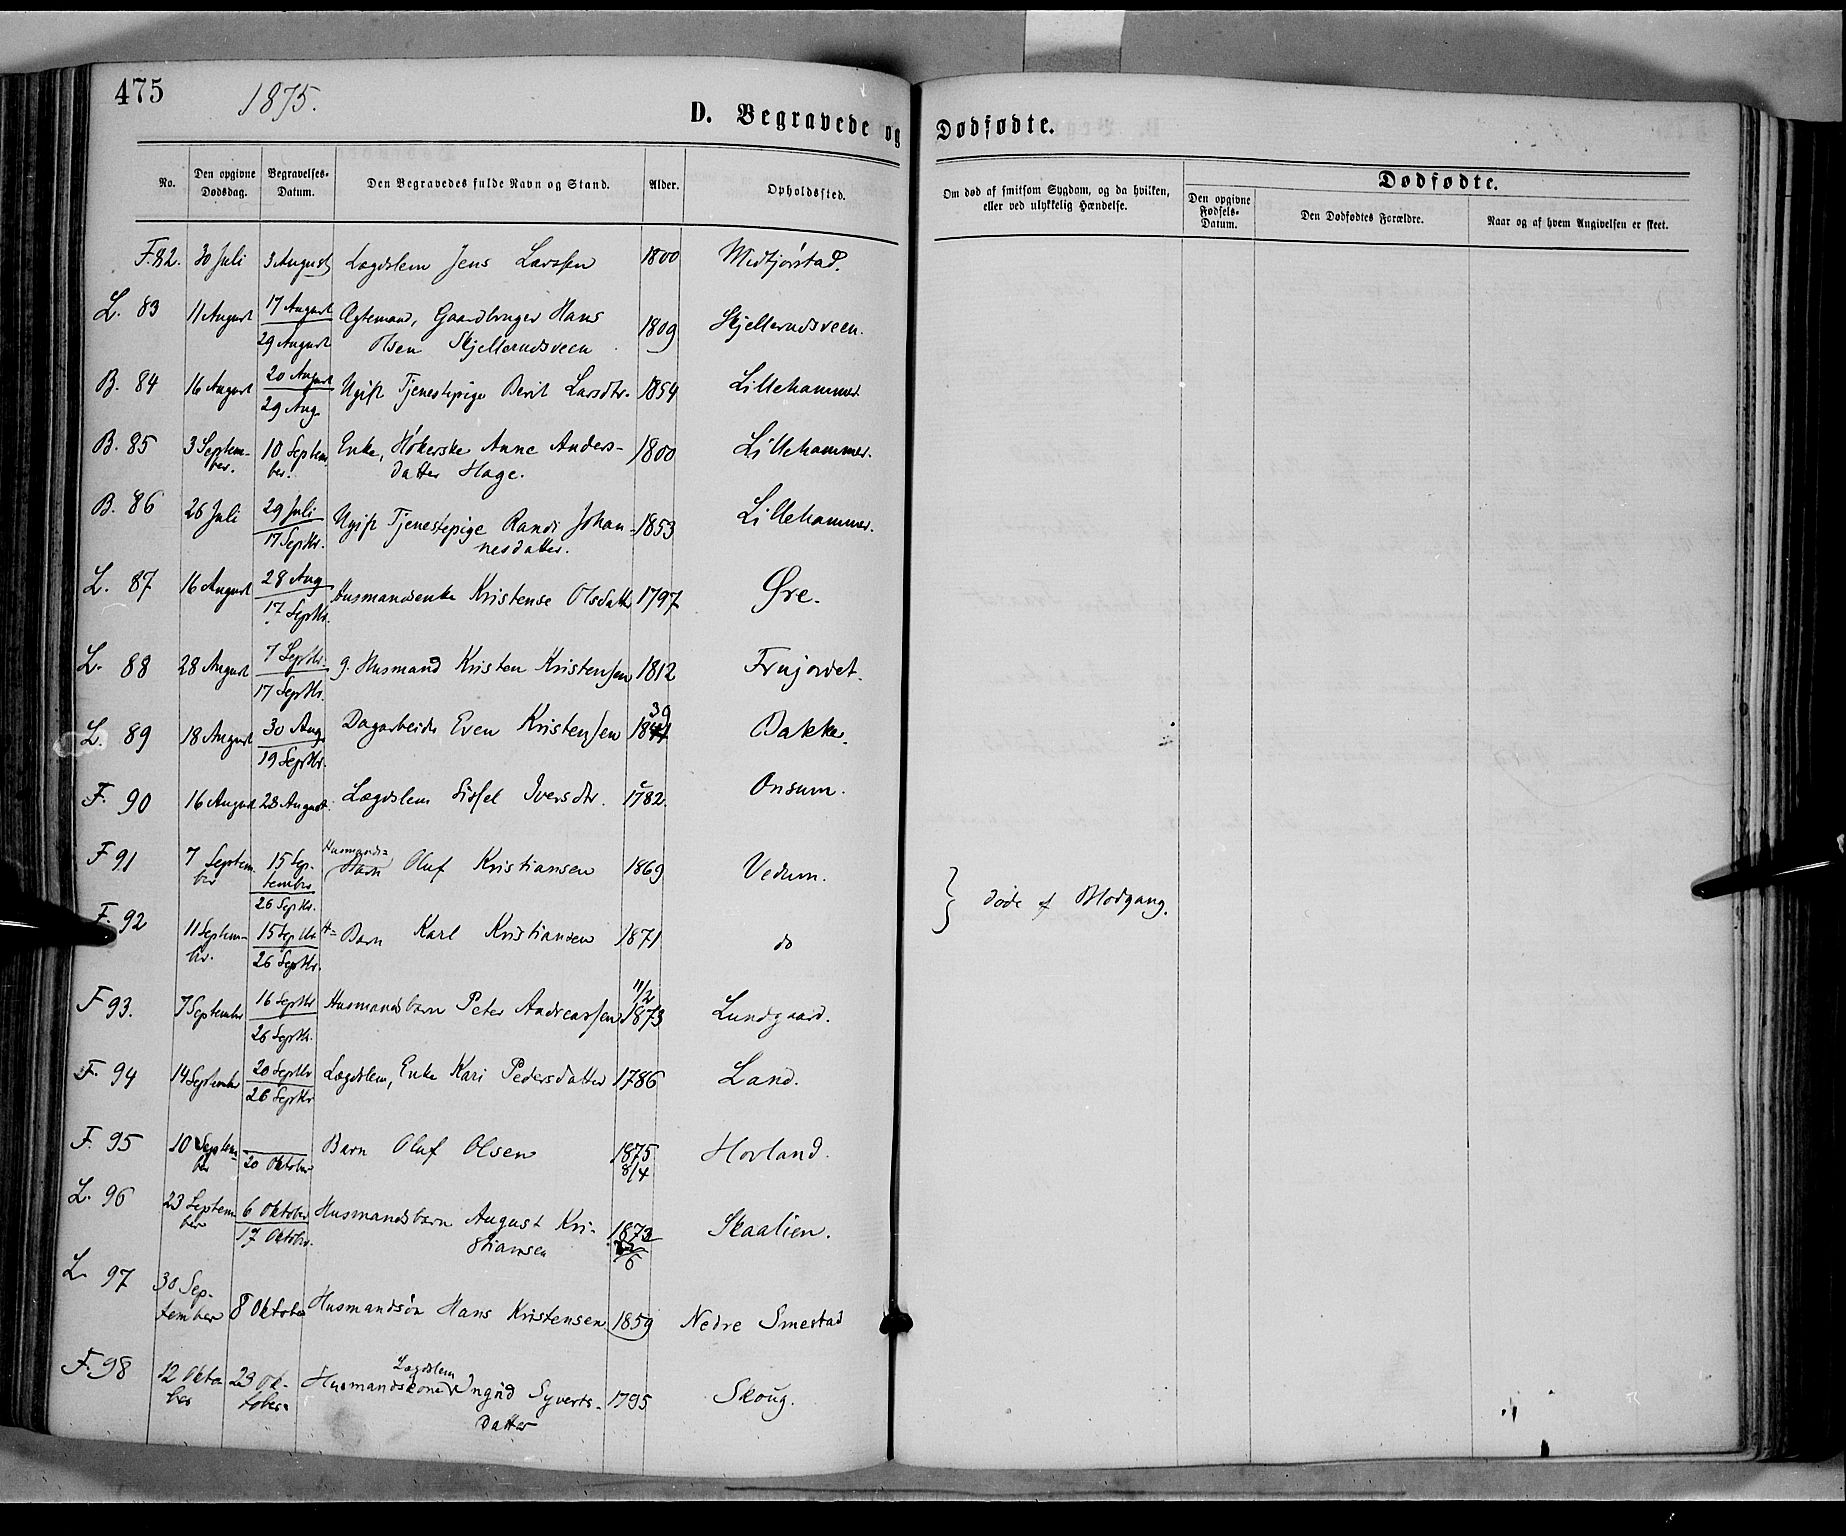 475
1875.
D. Begravede og Dødfødte.
No.
Den opgivne Dødsdag.
Begravelses-Datum.
Den Begravedes fulde Navn og Stand.
Alder.
Opholdssted.
Om død af smitsom Sygdom, og da hvilken, eller ved ulykkelig Hændelse.
Dødfødte.
Den opgivne Fødsels-Datum.
Den Dødfødtes Forældre.
Naar og af hvem Angivelsen er skeet.
F. 82. 30 Juli 3 August Lægdslem Jens Larssen 1800 Midtjørstad.
L. 83 11 August 17 August Ægtemand, Gaardbruger Hans 1809 Skjellerudsveen.
29 August Olsen Skjellerudsveen
B. 84 16 August 20 August Ugift Tjenestepige Berit Larsdtr. 1854 Lillehammer
29 Aug.
B. 85 3 Septem- 10 Septem Enke, Høkerske Anne Anders- 1800 Lillehammer.
ber. ber. datter Hage.
B. 86 26 Juli 29 Juli Ugift Tjenestepige Randi Johan- 1853 Lillehammer.
17 Septbr. nesdatter.
L. 87 16 August 28 Aug Husmandsenke Kristense Olsdatter 1797 Øre.
17 Septbr.
L. 88 28 August 7 Septbr. g. Husmand Kristen Kristensen 1812 Frujordet.
17 Septbr.
L. 89 18 August 30 Aug. Dagarbeider Even Kristensen 1844 30 Bakke.
19 Septbr.
F. 90 16 August 28 August. Lægdslem Sissel Iversdtr. 1782. Onsum.
F 91 7 Septem 15 Sep- Husmands= Barn Oluf Kristiansen 1869 Vedum.
ber tember
26 Septbr.
} døde af Blodgang.
F. 92 11 Septem- 15 Septbr H= Barn Karl Kristiansen 1871 do
br. 26 Septbr.
F 93. 7 September 16 Septbr Husmandsbarn Peter Andreassen 11/2 1873 Lundgaard.
26 Septbr.
F. 94 14 September 20 Septbr Lægdslem, Enke Kari Pedersdatter 1786 Land.
26 Septbr
F. 95 10 Septem- Barn Oluf Olsen 1875 Hovland.
ber 20 Oktober 8/4
L. 96 23 Septem 6 Oktober Husmandsbarn August Kri- 1873 Skaalien.
ber 17 Oktober. stiansen
L. 97 30 Sep-
tember 8 Oktober Husmandsøn Hans Kristensen 1859 Nedre Smestad
F. 98 12 Okto 23 Ok- Husmandskone Lægdslem Ingrid Syverts- 1795 Skoug.
ber tober= datter